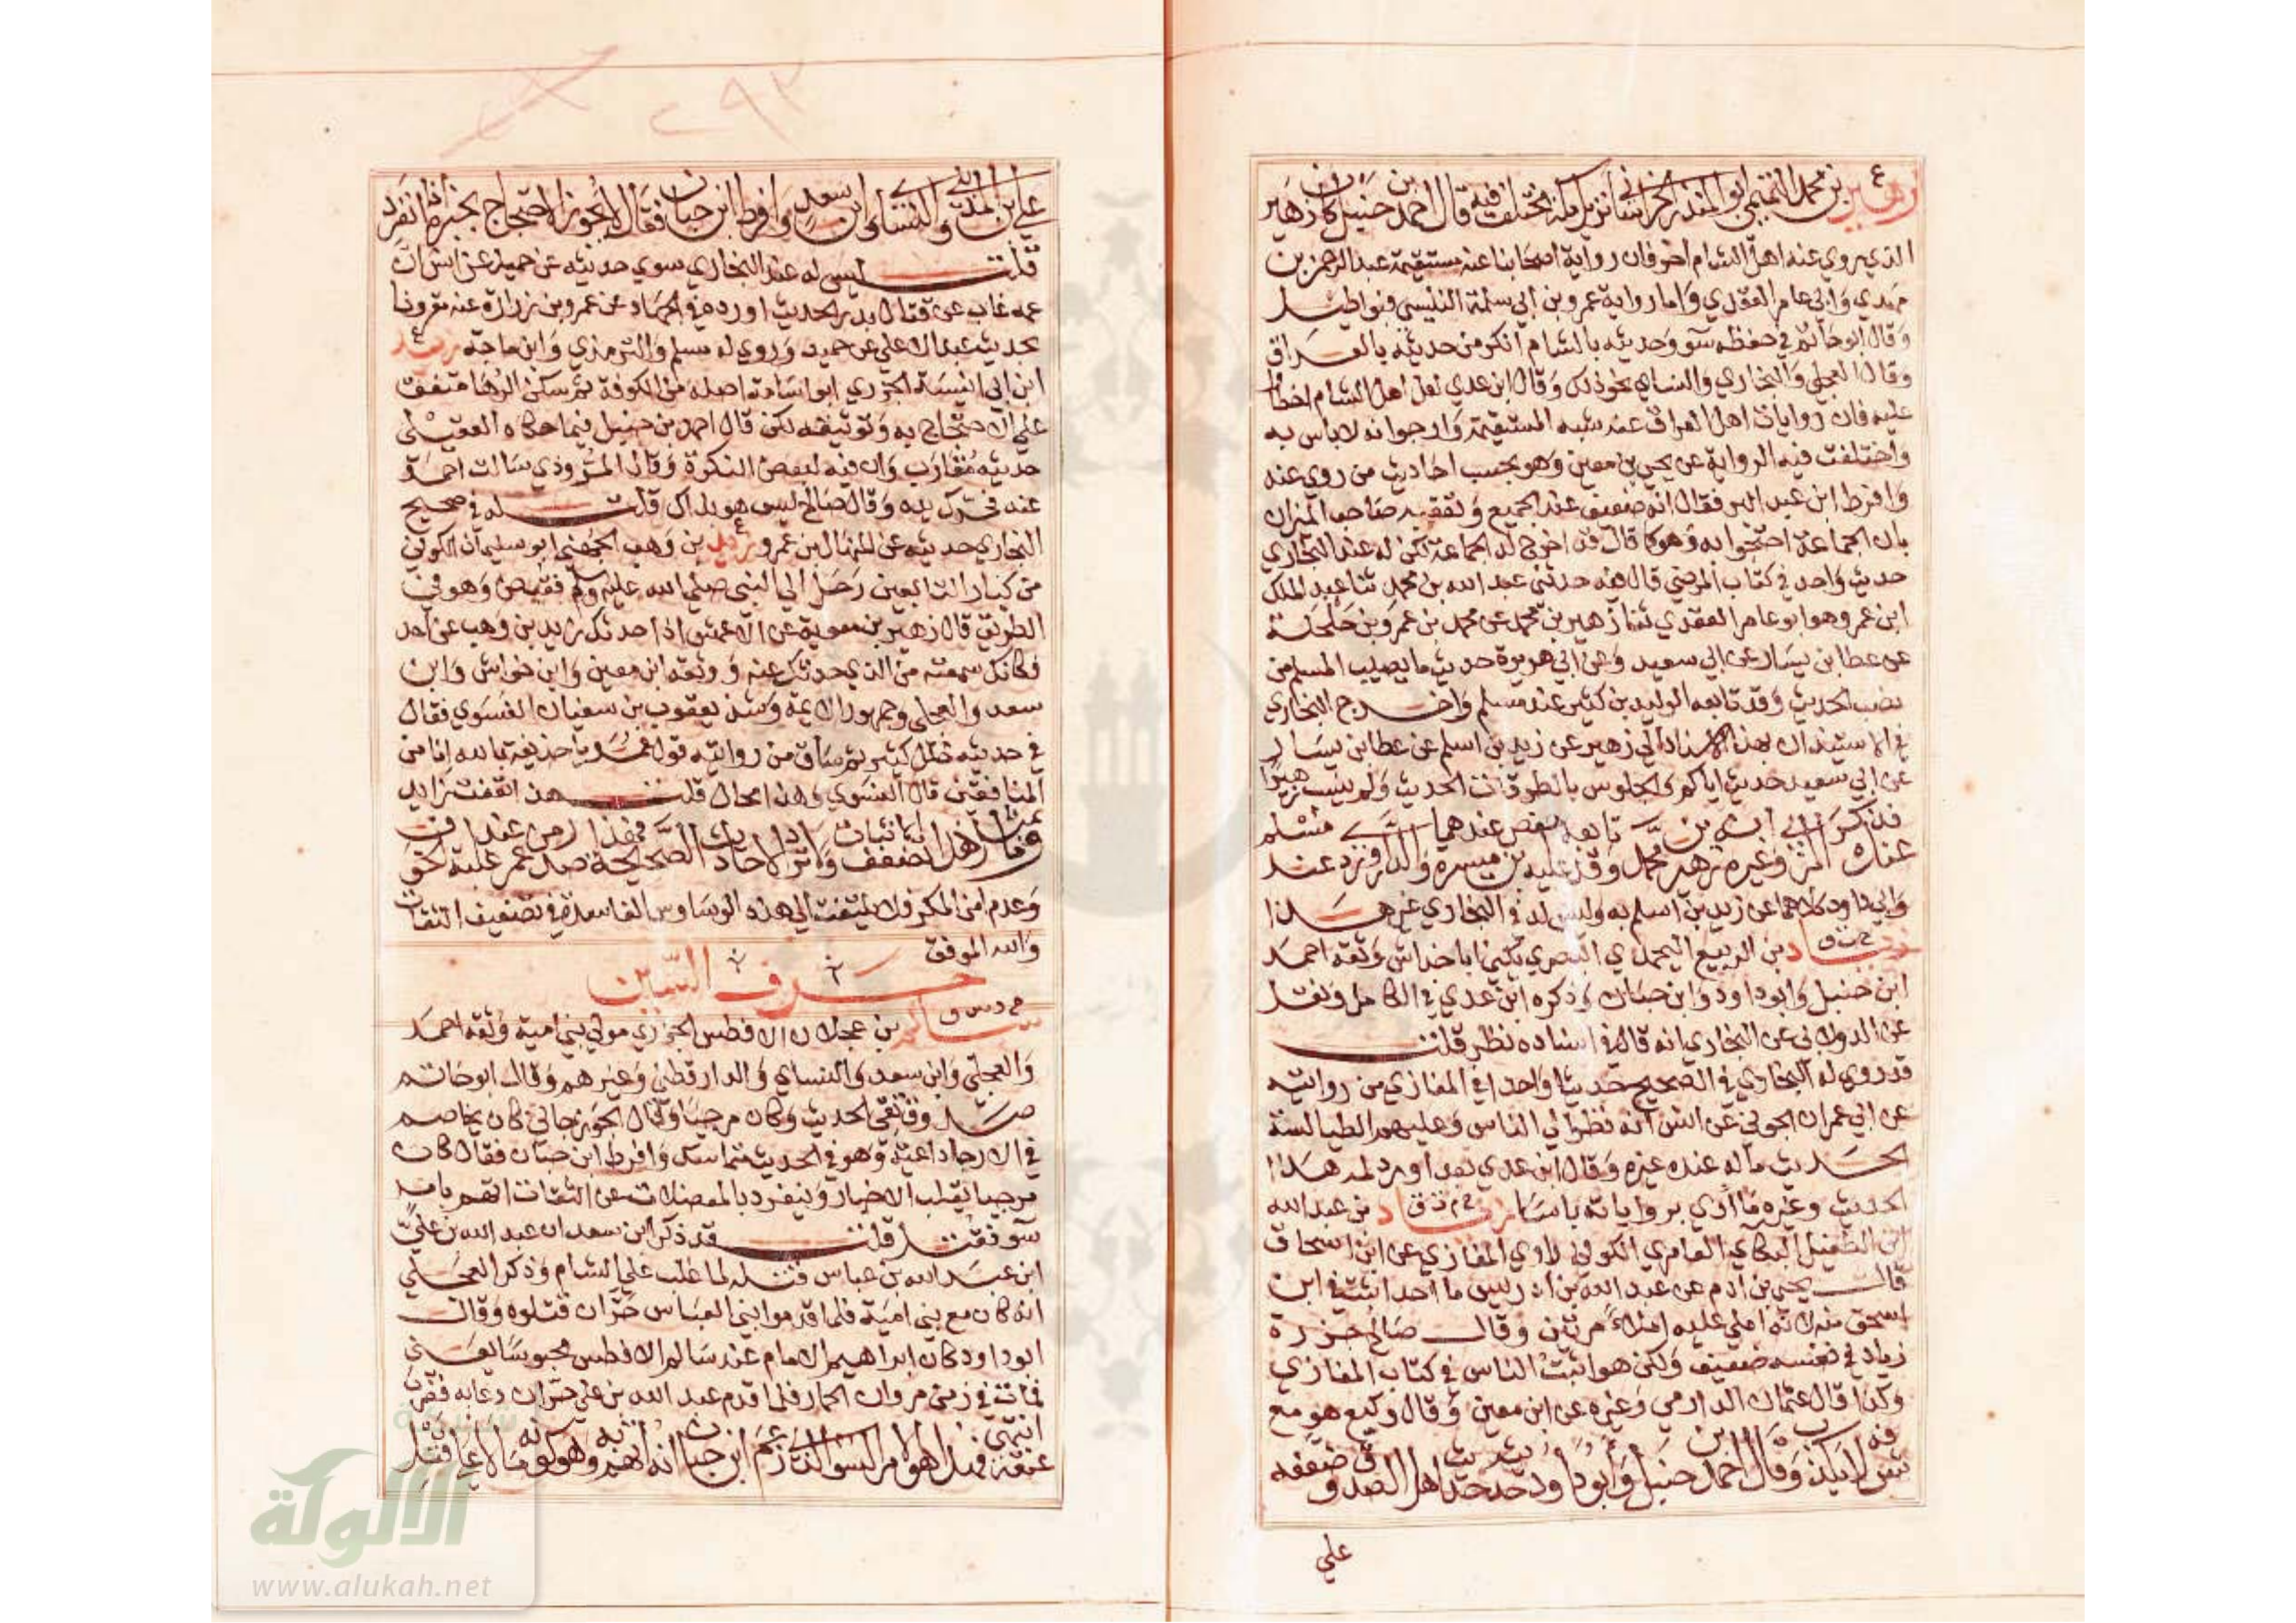 زهير بن محمد التميمي ابو المنذر الخراساني نزيل مكة مختلف فيه قال احمد بن حنبل كان زهير
الذي يروي عنه اهل الشام اخر فان رواية اصحابنا عنه مستقيمة عبد الرحمن بن
مهدي وابي عامر العقدي واما رواية عمرو بن ابي سلمة التنيسي فبواطيل
وقال ابو حاتم في حفظه سوو حديثه بالشام انكر من حديثه بالعراق
وقال العجلي والبخاري والنساي نحو ذلك وقال ابن عدي لعل اهل الشام اخطأوا
عليه فان روايات اهل العراق عنه شبه المستقيمة وارجوا انه لا باس به
واختلفت فيه الرواية عن يحيى بن معين وهو بحسب احاديث من روي عنه
وافرط ابن عبد البر فقال انه ضعيف عند الجميع وتعقبه صاحب الميزان
بان الجماعة احتجوا به وهو كما قال قد اخرج له الجماعة لكن له عند البخاري
حديث واحد في كتاب المرضي قال فيه حدثني عبد الله بن محمد ثنا عبد الملك
ابن عمرو هو ابو عامر العقدي ثنا زهير بن محمد عن محمد بن عمرو بن حلحلة
عن عطا بن يسار عن ابي سعيد وعن ابي هريرة حديث ما يصيب المسلم من
نصب الحديث وقد تابعه الوليد بن كثير عند مسلم واخرج البخاري
في الاستيذان بهذا الاسناد الي زهير عن زيد بن اسلم عن عطا بن يسار
عن ابي سعيد حديث اياكم والجلوس بالطرقات الحديث ولم ينسب زهيرا
فذكر المزي انه زهير بن محمد وقد تابعه عليه حفص بن ميسرة عندهما والدراوردي عند مسلم
وابي داود كلاهما عن زيد بن اسلم به وليس له في البخاري غير هذا
زياد خ ت ق بن الربيع اليحمدي البصري يكني ابا خداش وثقه احمد
ابن حنبل وابو داود وابن حبان وذكره ابن عدي في الكامل ونقل
عن الدولابي عن البخاري انه قال في اسناده نظر قلت
قد روي له البخاري في الصحيح حديثا واحدا في المغازي من روايته
عن ابي عمران الجوني عن انس انه نظر الي الناس وعليهم الطيالسة
الحديث ما له عنده غيره وقال ابن عدي بعد اورد له هذا
الحديث وغيره ما ادري برواياته باسا زياد خ م ت ق بن عبد الله
ابن الطفيل البكاي العامري الكوفي راوي المغازي عن ابن اسحاق
قال يحيى بن ادم عن عبد الله بن ادريس ما احد اثبت في ابن
اسحق منه لانه املي عليه املاء مرتين وقال صالح جزرة
زياد في نفسه ضعيف ولكن هو اثبت الناس في كتاب المغازي
وكذا قال عثمان الدارمي وغيره عن ابن معين وقال وكيع هو مع
شرفه لا يكذب وقال احمد بن حنبل وابو داود حديثه حديث اهل الصدق وضعفه
علي
٢٩٣
علي بن المديني والنساي وابن سعد وافرط ابن حبان فقال لا يجوز الاحتجاج بخبره اذا انفرد
قلت ليس له عند البخاري سوي حديثه عن حميد عن انس ان
عمه غاب عن قتال بدر الحديث اورده في الجهاد عن عمرو بن زرارة عنه مقرونا
بحديث عبد الاعلي عن حميد وروي له مسلم والترمذي وابن ماجة زيد ع
ابن ابي انيسة الجزري ابو اسامة اصله من الكوفة ثم سكن الرها متفق
علي الاحتجاج به وتوثيقه لكن قال احمد بن حنبل فيما حكاه العقيلي
حديثه مقارب وان فيه لبعض النكرة وقال المروذي سالت احمد
عنه فحرك يده وقال صالح ليس هو بذاك قلت له في صحيح
البخاري حديثه عن المنهال بن عمرو زيد ع بن وهب الجهني ابو سليمان الكوفي
من كبار التابعين رحل الي النبي صلي الله عليه وسلم فقبض وهو في
الطريق قال زهير بن معوية عن الاعمش اذا حدثك زيد بن وهب عن احد
فكانك سمعته من الذي يحدثك عنه ووثقه ابن معين وابن خراش وابن
سعد والعجلي وجمهور الايمة وشذ يعقوب بن سفيان الفسوي فقال
في حديثه خلل كثير ثم ساق من روايته قول عمر يا حذيفة بالله انا من
المنافقين قال الفسوي وهذا محال قلت هذا تعنت زايد
وما بمثل هذا تضعف الاثبات ولا ترد الاحاديث الصحيحة فهذا صدر من عمر عند غلبة الخوف
وعدم امن المكر فلا يلتفت الي هذه الوساوس الفاسدة في تضعيف الثقات
والله الموفق
حرف السين
سالم خ د س ق بن عجلان الافطس الجزري مولي بني امية وثقه احمد
والعجلي وابن سعد والنساي والدارقطني وغيرهم وقال ابو حاتم
صدوق نقي الحديث وكان مرجيا وقال الجوزجاني كان يخاصم
في الارجا داعية وهو في الحديث متماسك وافرط ابن حبان فقال كان
مرجيا يقلب الاخبار وينفرد بالمعضلات عن الثقات اتهم بامر
سو فقتل قلت قد ذكر ابن سعد ان عبد الله بن علي
ابن عبد الله بن عباس قتله لما غلب علي الشام وذكر العجلي
انه كان مع بني امية فلما قدموا بني العباس حران قتلوه وقال
ابو داود كان ابراهيم الامام عند سالم الافطس محبوسا يعني
فمات في زمن مروان الحمار فلما قدم عبد الله بن علي حران دعا به فضرب
عنقه انتهي فهذا هو الامر السو الذي زعم ابن حبان انه اتهم به وهو كونه مالا علي قتل
الألوكة
www.alukah.net